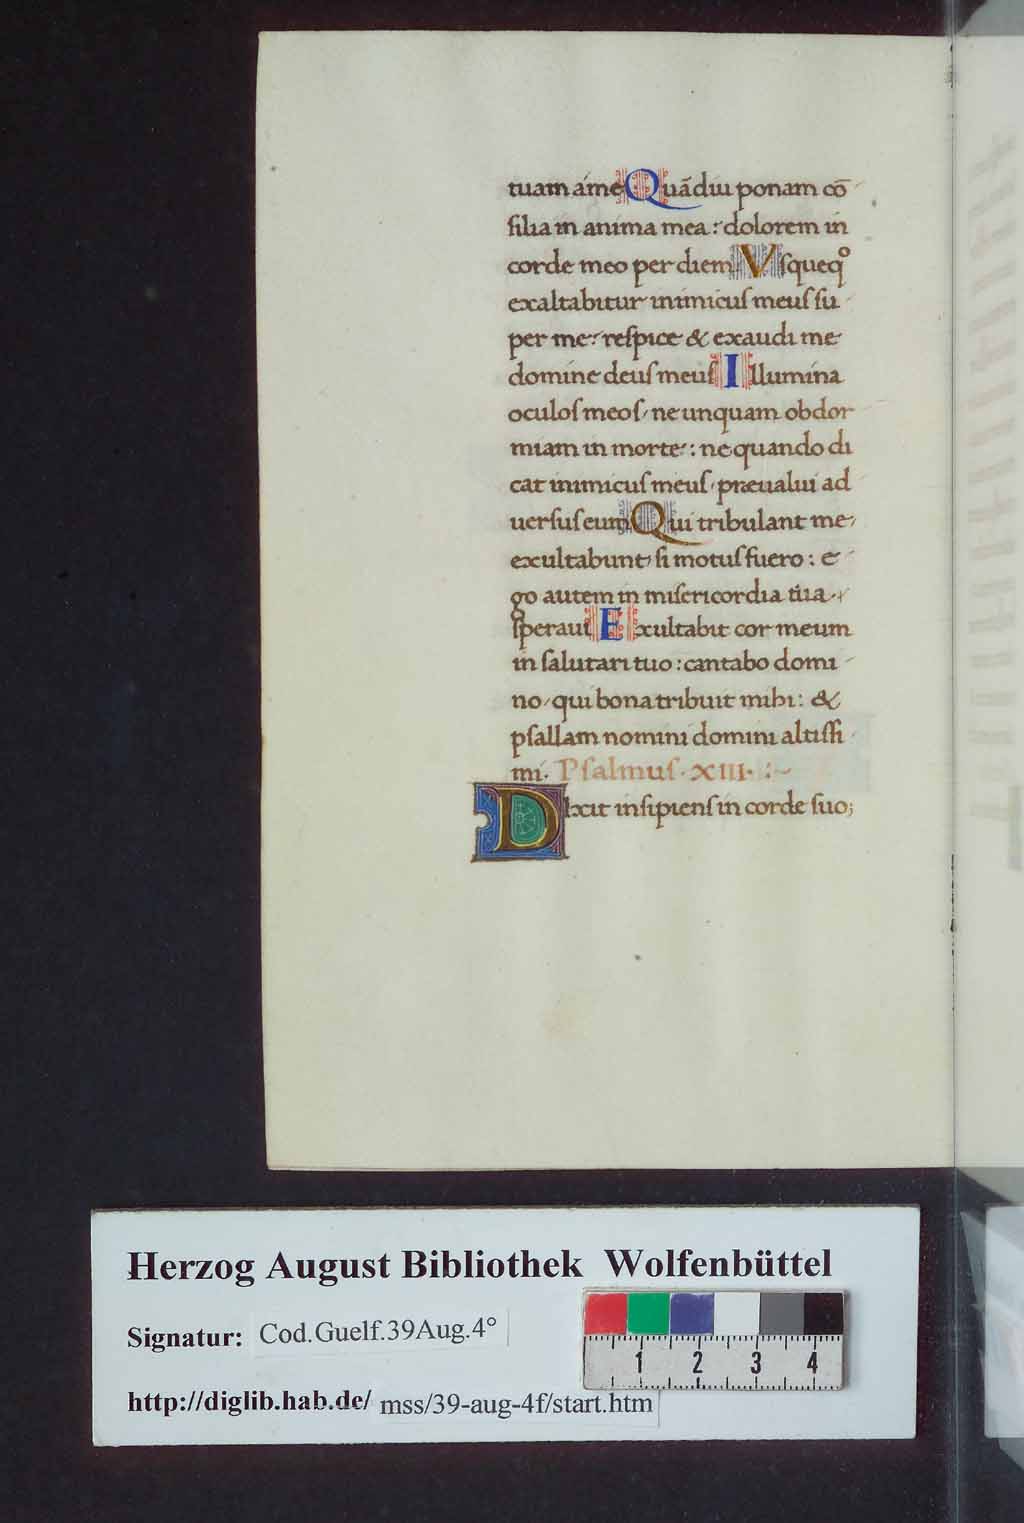 tuam a me Quādiu ponam cō
silia in anima mea: dolorem in
corde meo per diem Vsqueqº
exaltabitur inimicus meus su
per me: respice & exaudi me
domine deus meus Illumina
oculos meos, ne unquam obdor
miam in morte: ne quando di
cat inimicus meus, præualui ad
uersus eum Qui tribulant me,
exultabunt si motus fuero: e
go autem in misericordia tua
speraui Exultabit cor meum
in salutari tuo: cantabo domi
no, qui bona tribuit mihi: &
psallam nomini domini altissi
mi. Psalmus. XIII. :~
Dixit insipiens in corde suo;
Herzog August Bibliothek Wolfenbüttel
Signatur: Cod.Guelf.39Aug.4°
http://diglib.hab.de/ mss/39-aug-4f/start.htm
1 2 3 4